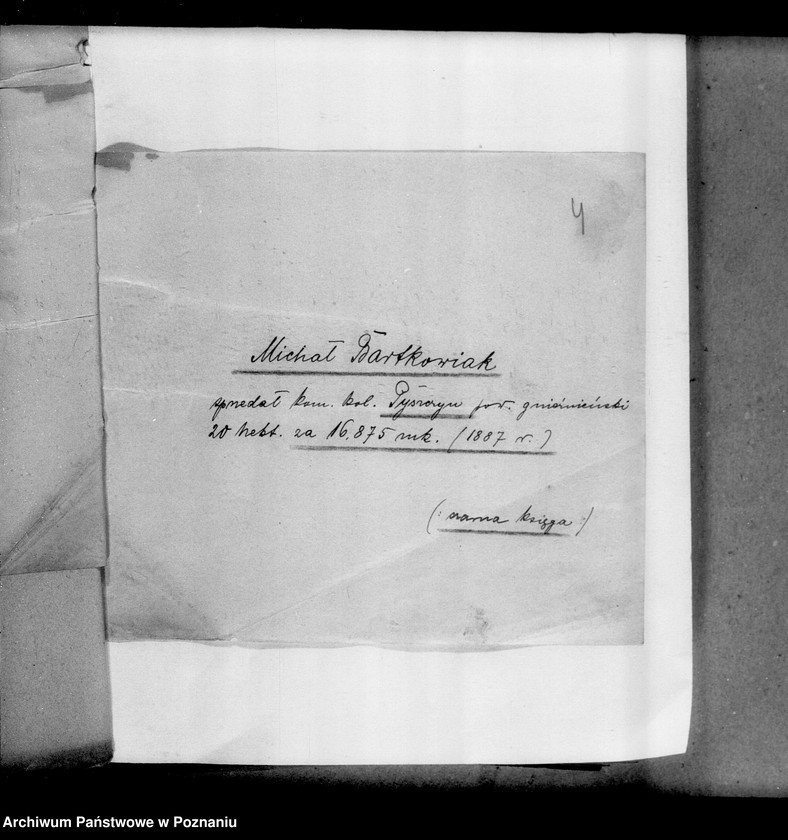 4
Michał Bartkowiak
sprzedał kom. kol. Pyszczyn pow. gnieźnieński
20 hekt. za 16.875 mk. (1887 r.)
(: czarna księga :)
Archiwum Państwowe w Poznaniu